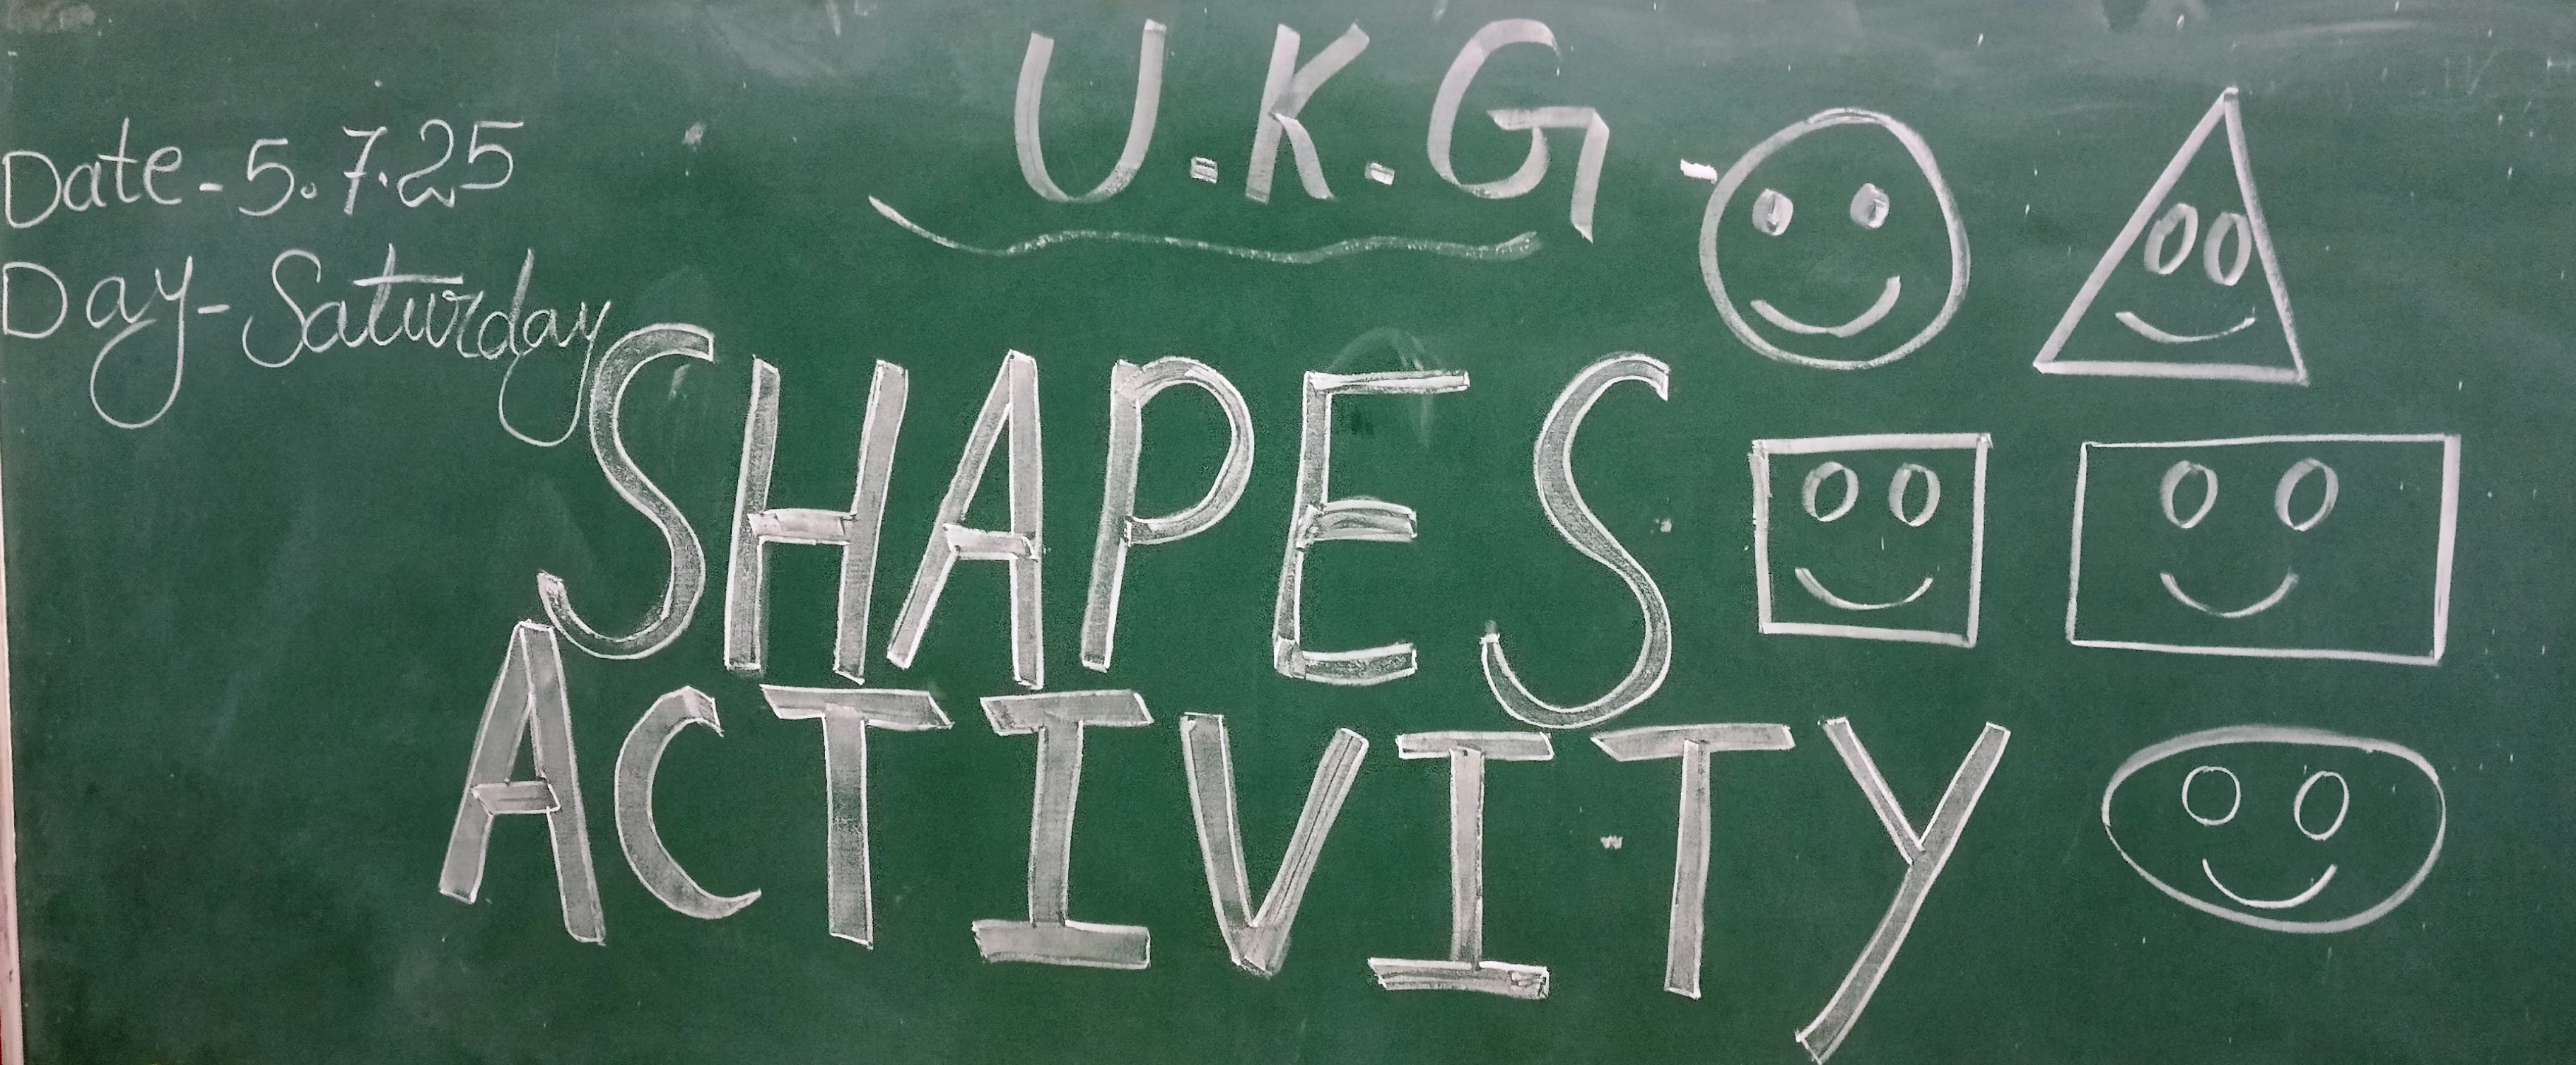 U.K.G
Date-5.7.25
Day-Saturday
SHAPES
ACTIVITY